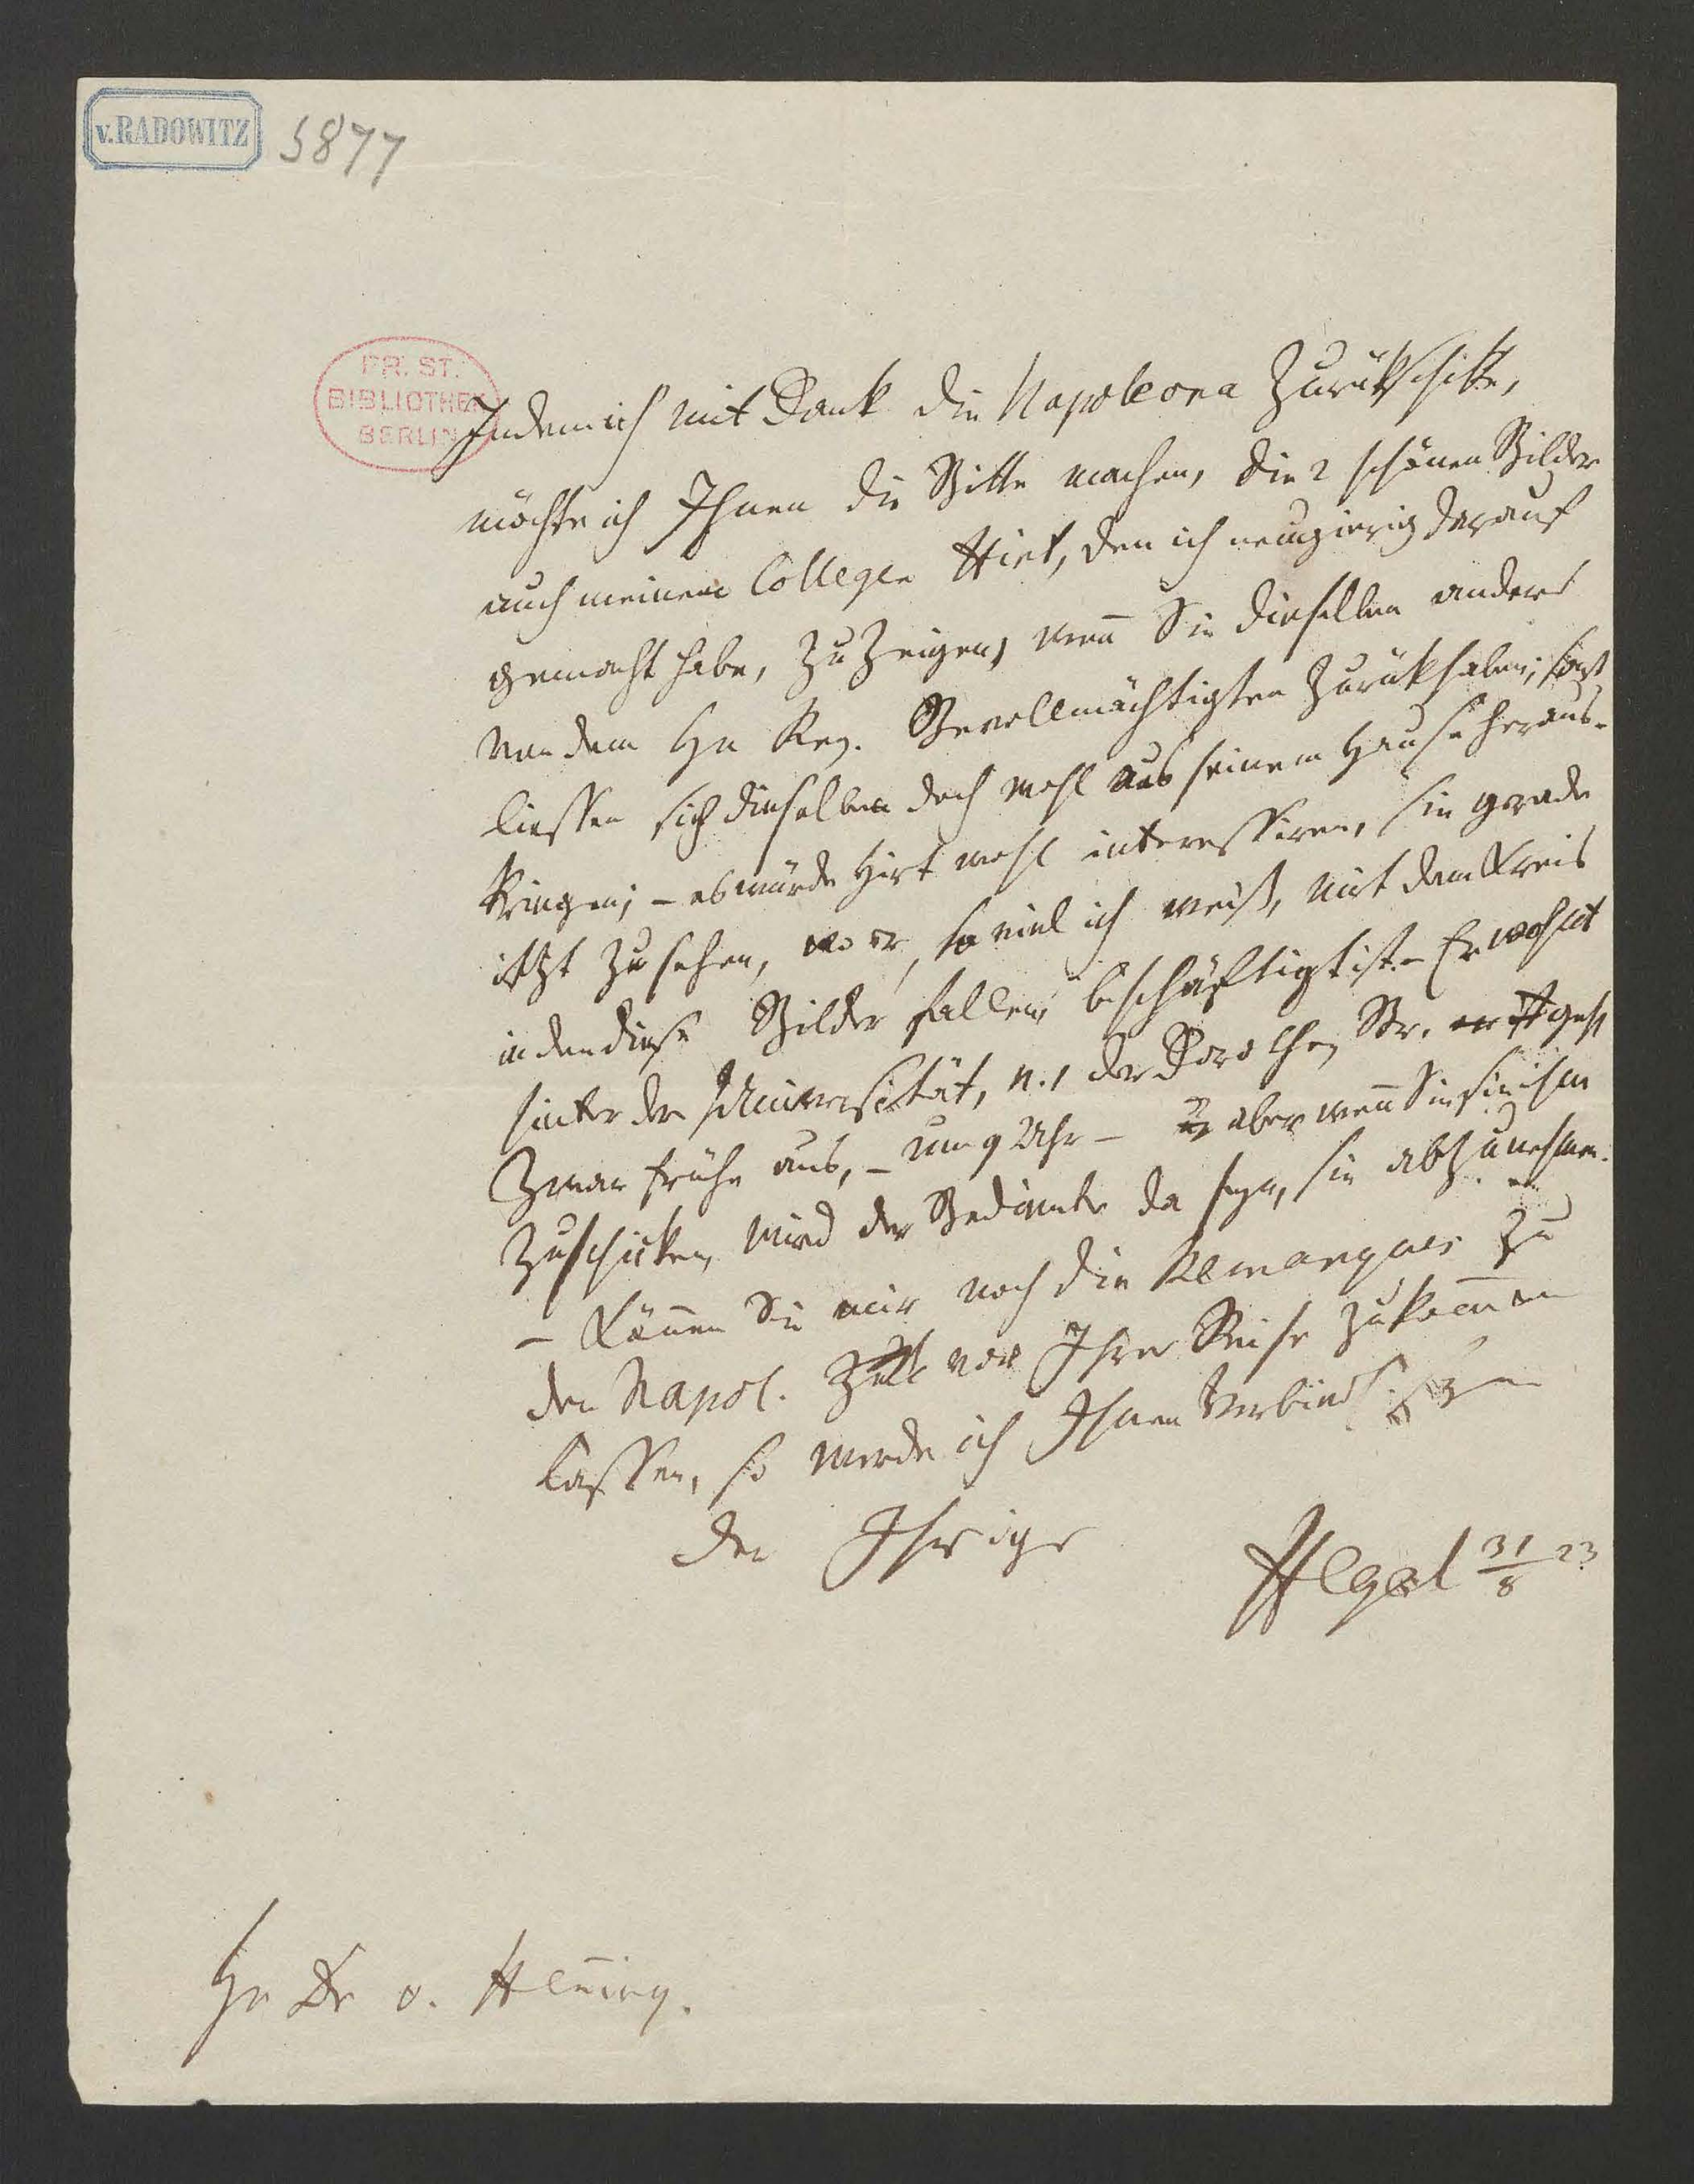 v. RADOWITZ
5877
PR. ST.
BIBLIOTHEK
BERLIN
Indem ich mit Dank die Napoleona zurükschikke,
möchte ich Ihnen die Bitte machen, die 2 schönen Bilder
auch meinem Collegen Hirt, den ich neugierig darauf
gemacht habe, zu zeigen, weñ Sie dieselben anders
von dem Hn Reg. Bevollmächtigten zurükhaben; sonst
liessen sich dieselben doch wohl aus seinem Hause heraus-
kriegen; – es würde Hirt wohl interessiren, sie gerade
itzt zu sehen, wo er, so viel ich weiß, mit dem Kreis
in den diese Bilder fallen, beschäftigt ist. – Er wohnt
hinter der Universität, N. 1 der Dorotheen Str. geht
zwar frühe aus, – um 9 Uhr – aber weñ Sie sie ihm
zuschicken, wird der Bediente da seyn, sie abzunehmen.
– Köñen Sie mir noch die Remarques zu
den Napol. vor Ihrer Reise zukom̄en
lassen, so werde ich Ihnen verbindl. seyn
der Ihrige
Hegel 31/8 23
Hn Dr v. Heñing.